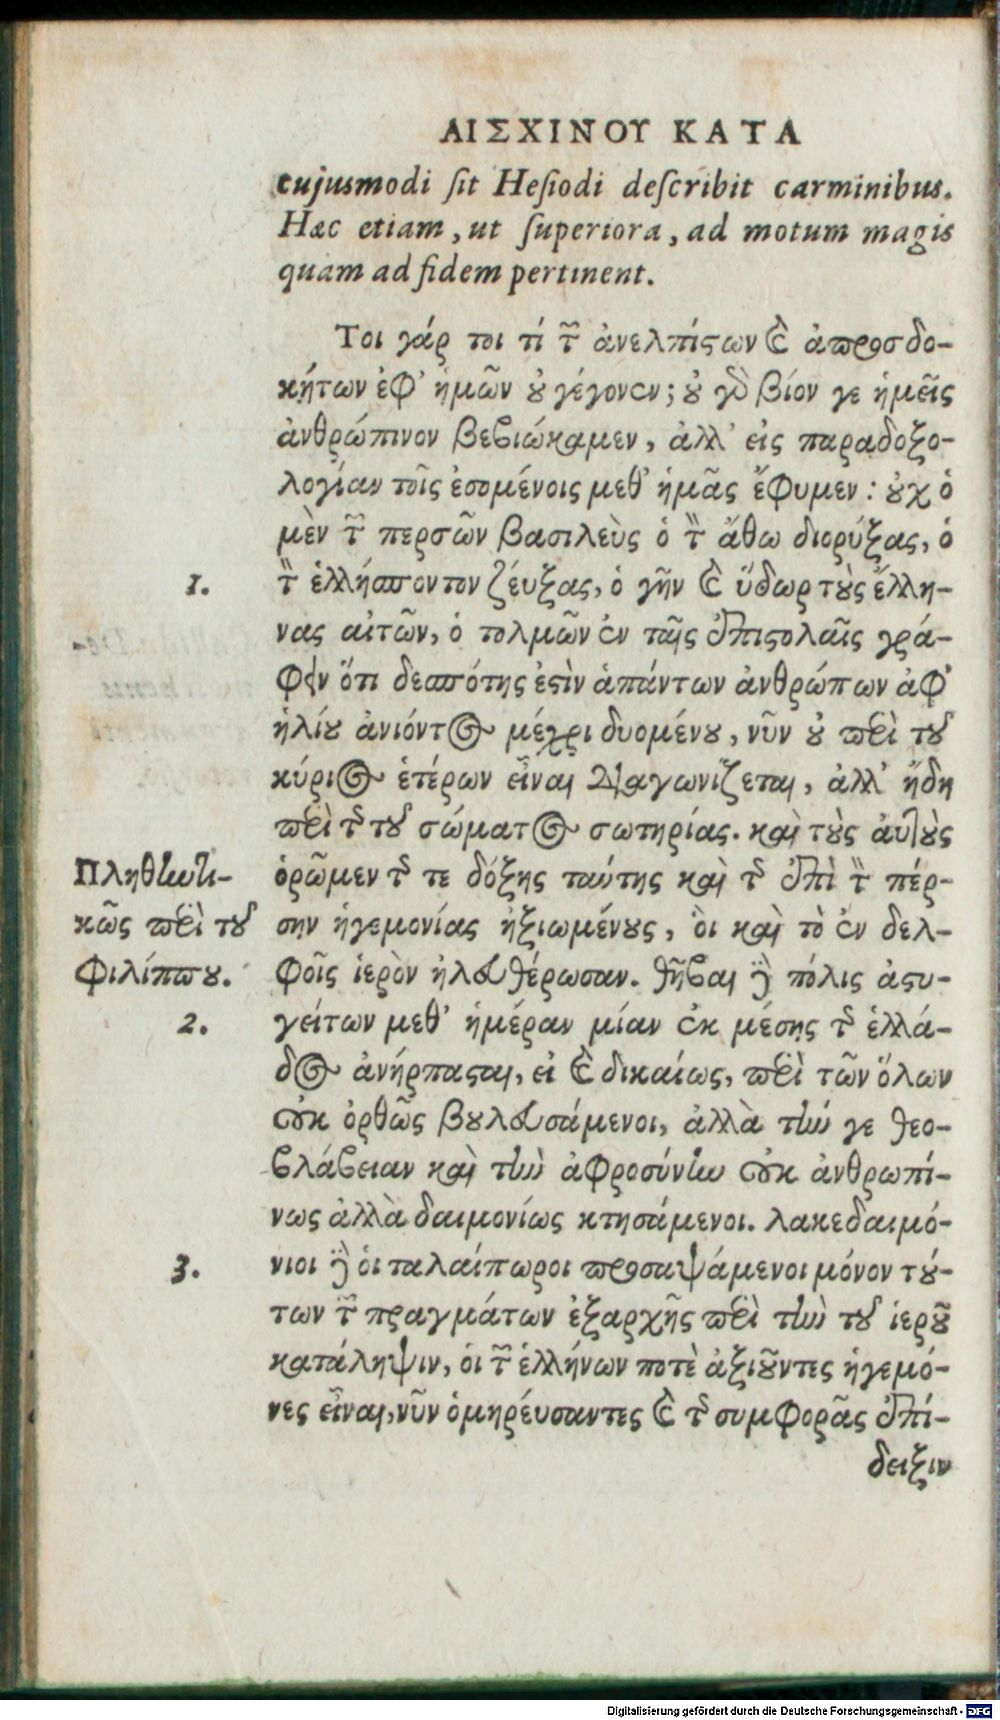 ΑΙΣΧΙΝΟΥ ΚΑΤΑ
cujusmodi ſit Heſiodi deſcribit carminibus.
Hæc etiam, ut ſuperiora, ad motum magis
quam ad fidem pertinent.
Τοι γάρ τοι τί τῶν ἀνελπίστων καὶ ἀπροσδο-
κήτων ἐφ' ἡμῶν οὐ γέγονεν; οὐ γὰρ βίον γε ἡμεῖς
ἀνθρώπινον βεβιώκαμεν, ἀλλ' εἰς παραδοξο-
λογίαν τοῖς ἐσομένοις μεθ' ἡμᾶς ἔφυμεν: οὐχ ὁ
μὲν τῶν περσῶν βασιλεὺς ὁ τὸν ἄθω διορύξας, ὁ
1.
τὸν ἑλλήσποντον ζεύξας, ὁ γῆν καὶ ὕδωρ τοὺς ἕλλη-
νας αἰτῶν, ὁ τολμῶν ἐν ταῖς ἐπιστολαῖς γρά-
φειν ὅτι δεσπότης ἐστὶν ἁπάντων ἀνθρώπων ἀφ'
ἡλίου ἀνιόντος μέχρι δυομένου, νῦν οὐ περὶ τοῦ
κύριος ἑτέρων εἶναι διαγωνίζεται, ἀλλ' ἤδη
περὶ τῆς τοῦ σώματος σωτηρίας. καὶ τοὺς αὐτοὺς
Πληθωντι-
κῶς περὶ τοῦ
Φιλίππου.
ὁρῶμεν τῆς τε δόξης ταύτης καὶ τῆς ἐπὶ τὸν πέρ-
σην ἡγεμονίας ἠξιωμένους, οἳ καὶ τὸ ἐν δελ-
φοῖς ἱερὸν ἠλευθέρωσαν. θῆβαι δὲ πόλις ἀστυ-
2.
γείτων μεθ' ἡμέραν μίαν ἐκ μέσης τῆς ἑλλά-
δος ἀνήρπασται, εἰ καὶ δικαίως, περὶ τῶν ὅλων
οὐκ ὀρθῶς βουλευσάμενοι, ἀλλὰ τήν γε θεο-
βλάβειαν καὶ τὴν ἀφροσύνην οὐκ ἀνθρωπί-
νως ἀλλὰ δαιμονίως κτησάμενοι. λακεδαιμό-
3.
νιοι δὲ οἱ ταλαίπωροι προσαψάμενοι μόνον τού-
των τῶν πραγμάτων ἐξαρχῆς περὶ τὴν τοῦ ἱεροῦ
κατάληψιν, οἱ τῶν ἑλλήνων ποτὲ ἀξιοῦντες ἡγεμό-
νες εἶναι, νῦν ὁμηρεύσαντες καὶ τῆς συμφορᾶς ἐπί-
δειξιν
Digitalisierung gefördert durch die Deutsche Forschungsgemeinschaft - DFG